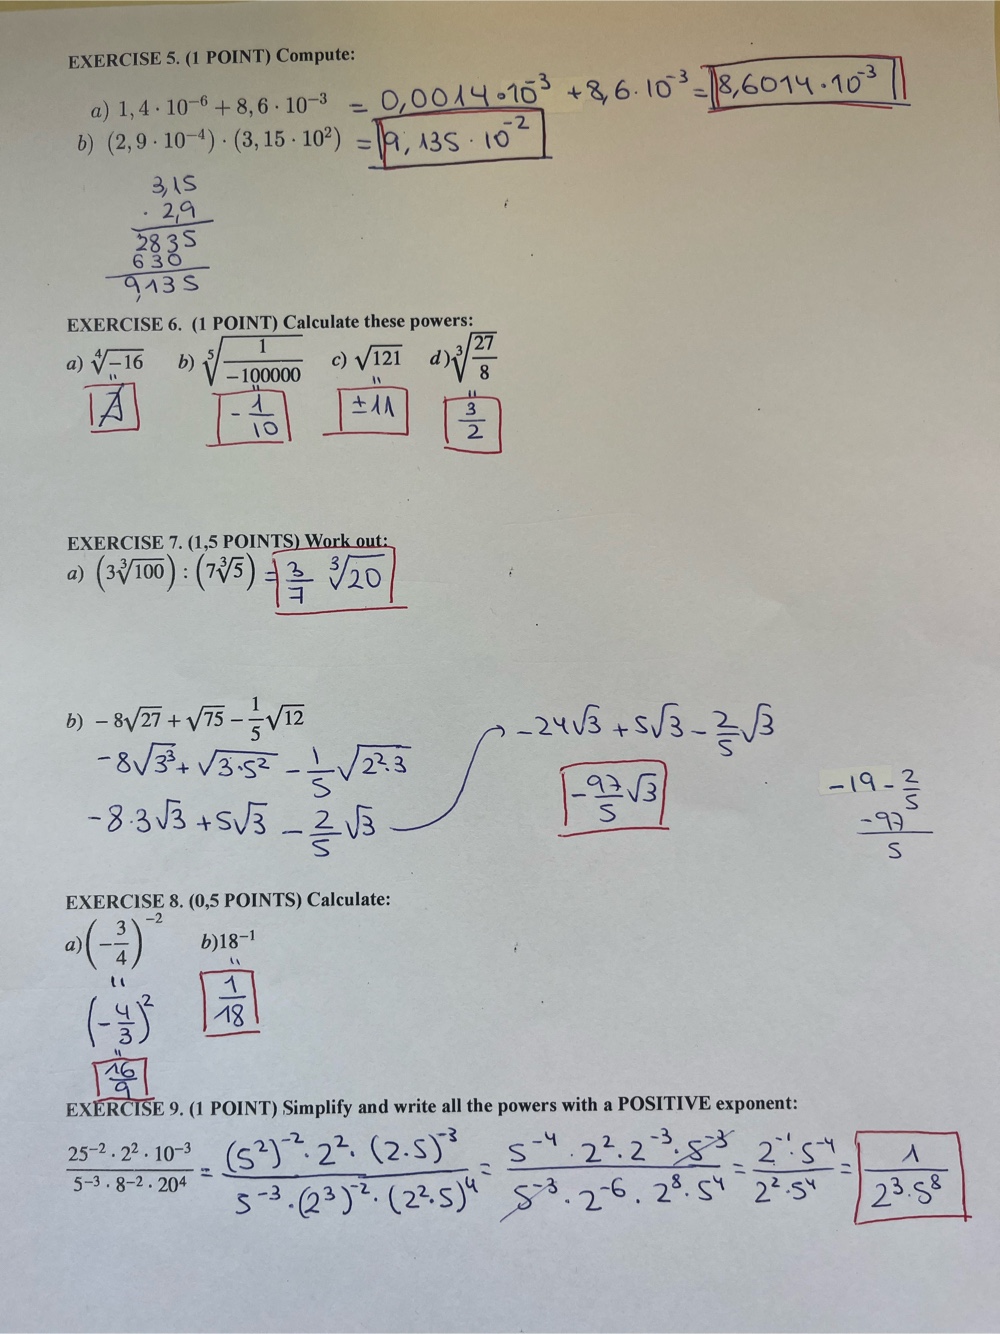 EXERCISE 5. (1 POINT) Compute:
a) 1,4 · 10⁻⁶ + 8,6 · 10⁻³ = 0,0014 · 10⁻³ + 8,6 · 10⁻³ = 8,6014 · 10⁻³
b) (2,9 · 10⁻⁴) · (3,15 · 10²) = 9,135 · 10⁻²
3,15
· 2,9
2835
630
9,135
EXERCISE 6. (1 POINT) Calculate these powers:
a) ⁴√-16 b) ⁵√(1/-100000) c) √121 d) ³√(27/8)
= ∄ = -1/10 = ±11 = 3/2
EXERCISE 7. (1,5 POINTS) Work out:
a) (3³√100) : (7³√5) = 3/7 ³√20
b) - 8√27 + √75 - 1/5 √12
-8√3³ + √3·5² - 1/5 √2²·3
-8·3√3 + 5√3 - 2/5 √3
-24√3 + 5√3 - 2/5 √3
-97/5 √3
-19 - 2/5
-97
5
EXERCISE 8. (0,5 POINTS) Calculate:
a) (-3/4)⁻² b) 18⁻¹
= (-4/3)² = 1/18
= 16/9
EXERCISE 9. (1 POINT) Simplify and write all the powers with a POSITIVE exponent:
(25⁻² · 2² · 10⁻³)/(5⁻³ · 8⁻² · 20⁴) = ((5²)⁻² · 2² · (2·5)⁻³)/(5⁻³ · (2³)⁻² · (2²·5)⁴) = (5⁻⁴ · 2² · 2⁻³ · 5⁻³)/(5⁻³ · 2⁻⁶ · 2⁸ · 5⁴) = (2⁻¹ · 5⁻⁴)/(2² · 5⁴) = 1/(2³ · 5⁸)